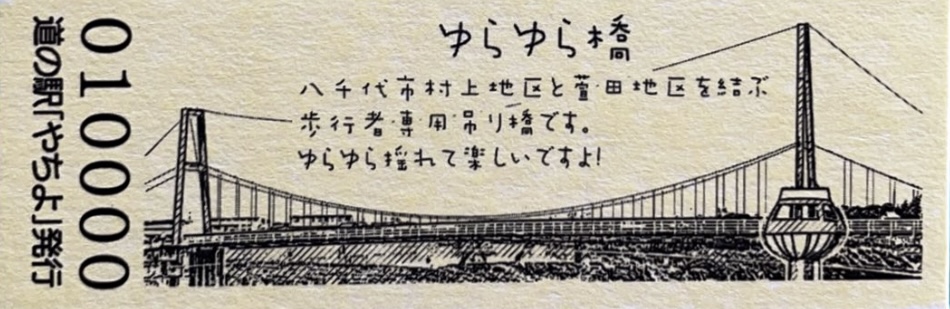 ゆらゆら橋
八千代市村上地区と萱田地区を結ぶ
歩行者専用吊り橋です。
ゆらゆら揺れて楽しいですよ!
010000
道の駅「やちよ」発行